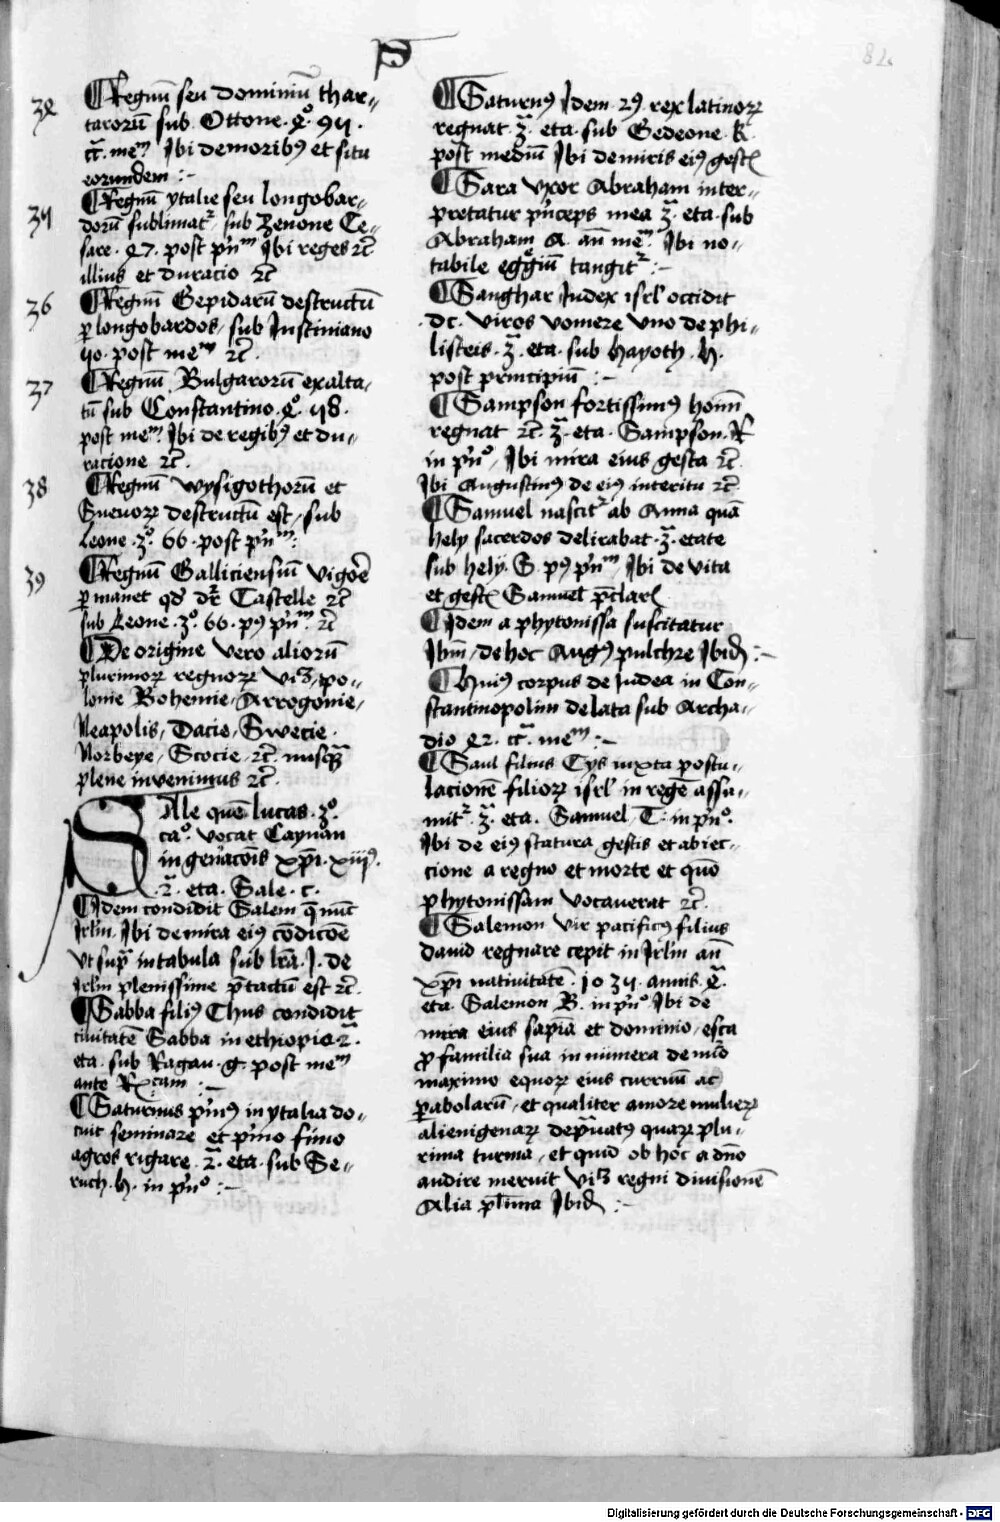 S
82
34 ¶ Regnū seu dominiū thar„
tarorū sub Ottone . 4°. 95 .
cc̄. meᵐ Ibi de moribꝰ et situ
eorundem :~
35 ¶ Regnū ytalie seu longobar„
dorū sublimatᷣ sub Zenone Ce„
sare . 47 . post pͥnᵐ Ibi reges ⁊c̄
illius et duracio ⁊c̄
36 ¶ Regnū Gepidarū destructū
ꝑ longobardos / sub Iustiniano
50 . post meᵐ ⁊c̄ .
37 ¶ Regnū Bulgarorū exalta„
tū sub Constantino . 4°. 58 .
post meᵐ Ibi de regibꝰ et du„
racione ⁊c̄ .
38 ¶ Regnū wysigothorū et
Sueuoꝝ destructū est / sub
Leone . 3°. 66 . post pͥnᵐ :
39 ¶ Regnū Galliciensiū vigore
ꝑmanet qd' dr̄ Castelle ⁊c̄
sub Leone . 3°. 66 . pꝰ pͥnᵐ . ⁊c̄
¶ De origine vero aliorū
plurimoꝝ regnoꝝ viꝫ / po„
lonie Bohemie / Arrogonie /
Neapolis / Dacie / Swecie .
Norbeye / Scocie / ⁊c̄ . nusqᷓ
plene invenimus ⁊c̄
SAle quē lucas . 3°.
ca°. vocat Caynan
in genʼacōis xp̄i . xiijꝰ.
. 2ᷓ . eta . Sale . c .
¶ Idem condidit Salem q̄ nūc
Irl'm . Ibi de mira eiꝰ cōdicōe
vt supᷓ in tabula sub lr̄a . I . de
Irl'm plenissime ptactū est ⁊c̄ .
¶ Sabba filiꝰ Chus condidit
ciuitatē Sabba in ethiopia . 2ᷓ .
eta . sub Ragau . g . post meᵐ
ante :~
¶ Saturnus pͥmꝰ in ytalia do„
cuit seminare et pͥmo fimo
agros rigare . 2ᷓ . eta . sub Se„
ruch . h . in pͥn° :~
¶ Saturnꝰ Idem 2ꝰ . rex latinoꝝ
regnat 3ᷓ . eta . sub Gedeone . K .
post mediū Ibi de miris eiꝰ gestꝭ
¶ Sara vxor Abraham inter„
pretatur pͥnceps mea 3ᷓ . eta . sub
Abraham A . an̄ meᵐ . Ibi no„
tabile eggͥū tangitᷣ :~
¶ Sanghar Iudex isrl' occidit
. dc . viros vomere vno de phi„
listeis . 3ᷓ . eta . sub hayoth . h .
post principiū :~
¶ Sampson fortissimꝰ hom̄
regnat ⁊c̄ . 3ᷓ . eta . Sampson . R
in pͥn° / Ibi mira eius gesta ⁊c̄
Ibi Augustinꝰ de eiꝰ interitu ⁊c̄
¶ Samuel nascitᷣ ab Anna quā
hely sacerdos delirabat . 3ᷓ . etate
sub hely . S . pꝰ pͥnᵐ / Ibi de vita
et gestꝭ Samuel p̄clarꝭ
¶ Idem a phytonissa suscitatur
Ibm̄ / de hoc Augꝰ pulchre Ibid' :~
¶ Huiꝰ corpus de Iudea in Con„
stantinopolim delata sub Archa„
dio 42 . cc̄ . meᵐ :~
¶ Saul filius Cys iuxta postu„
lacionē filioꝝ isrl' in regē assu„
mitᷣ 3ᷓ . eta . Samuel . T . in pͥn°.
Ibi de eiꝰ statura gestis et abiec„
cione a regno et morte et quō
phytonissam vocauerat ⁊c̄ .
¶ Salemon vir pacificꝰ filius
dauid regnare cepit in Irl'm an̄
xp̄i natiuitatē . 1035 . annis . 4ᷓ .
eta . Salemon B . in pͥn°. Ibi de
mira eius sapīa et dominio / esca
ꝓ familia sua in numera de mō
maximo equoꝝ eius curruū ac
ꝑabolarū / et qualiter amore mulieꝝ
alienigenaꝝ depͥuatꝰ quaꝝ plu„
rima turma / et quid ob hoc a dn̄o
audire meruit viꝫ regni diuisionē
Alia pl'ima Ibid' :~
Digitalisierung gefördert durch die Deutsche Forschungsgemeinschaft - DFG